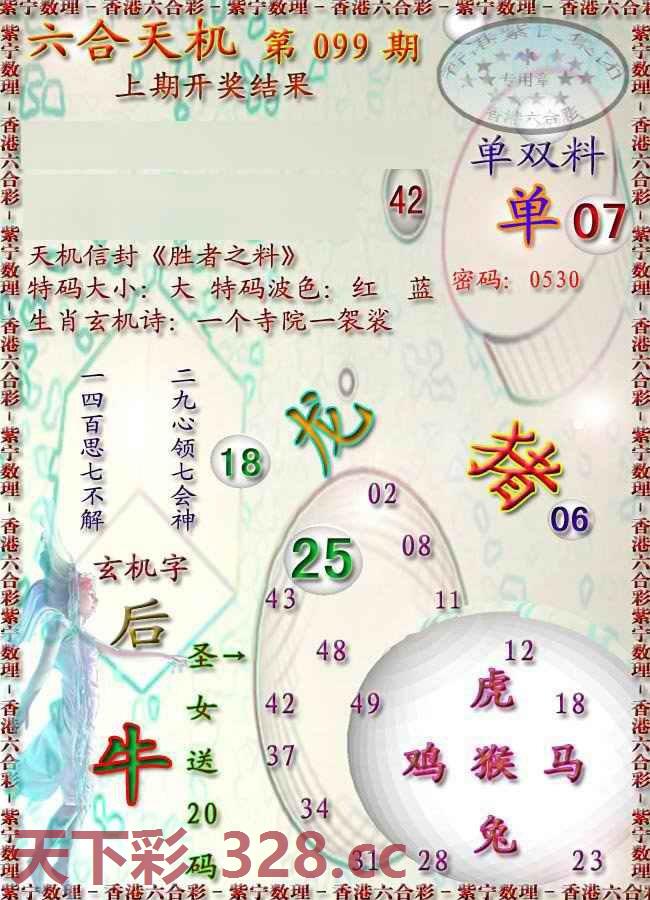 紫宁数理－香港六合彩－紫宁数理－香港六合彩－紫宁数理－香港六合彩－紫宁数理
六合天机 第 099 期
上期开奖结果
香港紫氏集团
专用章
香港六合彩
单双料
单 07
42
天机信封《胜者之料》
特码大小：大 特码波色：红 蓝
密码：0530
生肖玄机诗：一个寺院一袈裟
一四百思七不解
二九心领七会神
18
龙
猪
06
02
25
08
43
11
玄机字
后
48
12
圣→
女
送
20
码
虎
42
49
18
牛
37
鸡 猴 马
34
兔
31
28
23
天下彩.328.cc
紫宁数理－香港六合彩－紫宁数理－香港六合彩－紫宁数理－香港六合彩－紫宁数理